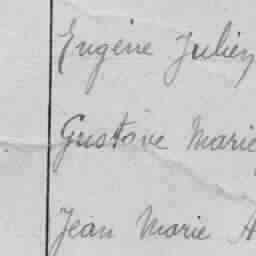 Eugène Julien
Gustave Marie
Jean Marie A